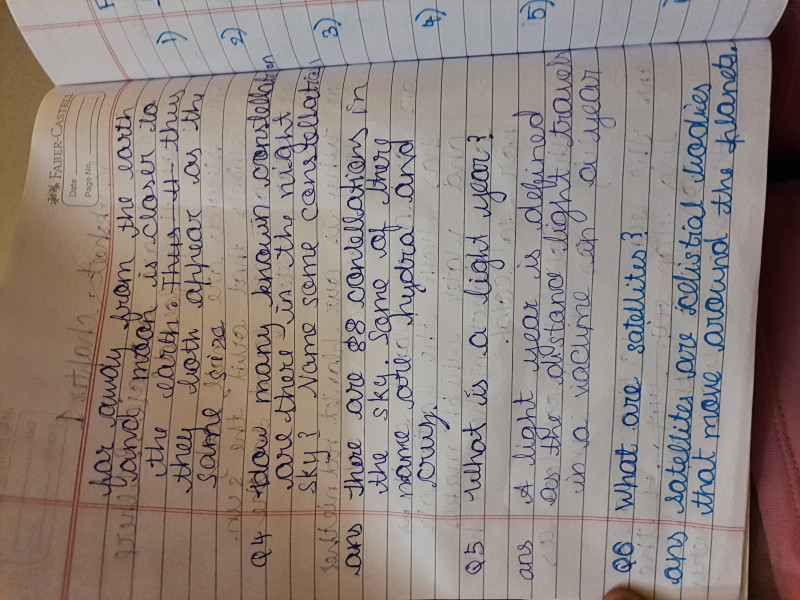 FABER-CASTELL
Date
Page No.
far away from the earth
and moon is closer to
the earth. Thus it thus
they both appear as the
same size
Q4 How many known constellation
are there in the night
sky? Name some constellation
ans There are 88 constellations in
the sky. Some of there
name are hydra and
Q5 What is a light year?
ans A light year is defined
as the distance light travels
in a vacume in a year
Q6 What are satellites?
ans satellites are celistial bodies
that move around the planets.
1)
2)
3)
4)
5)